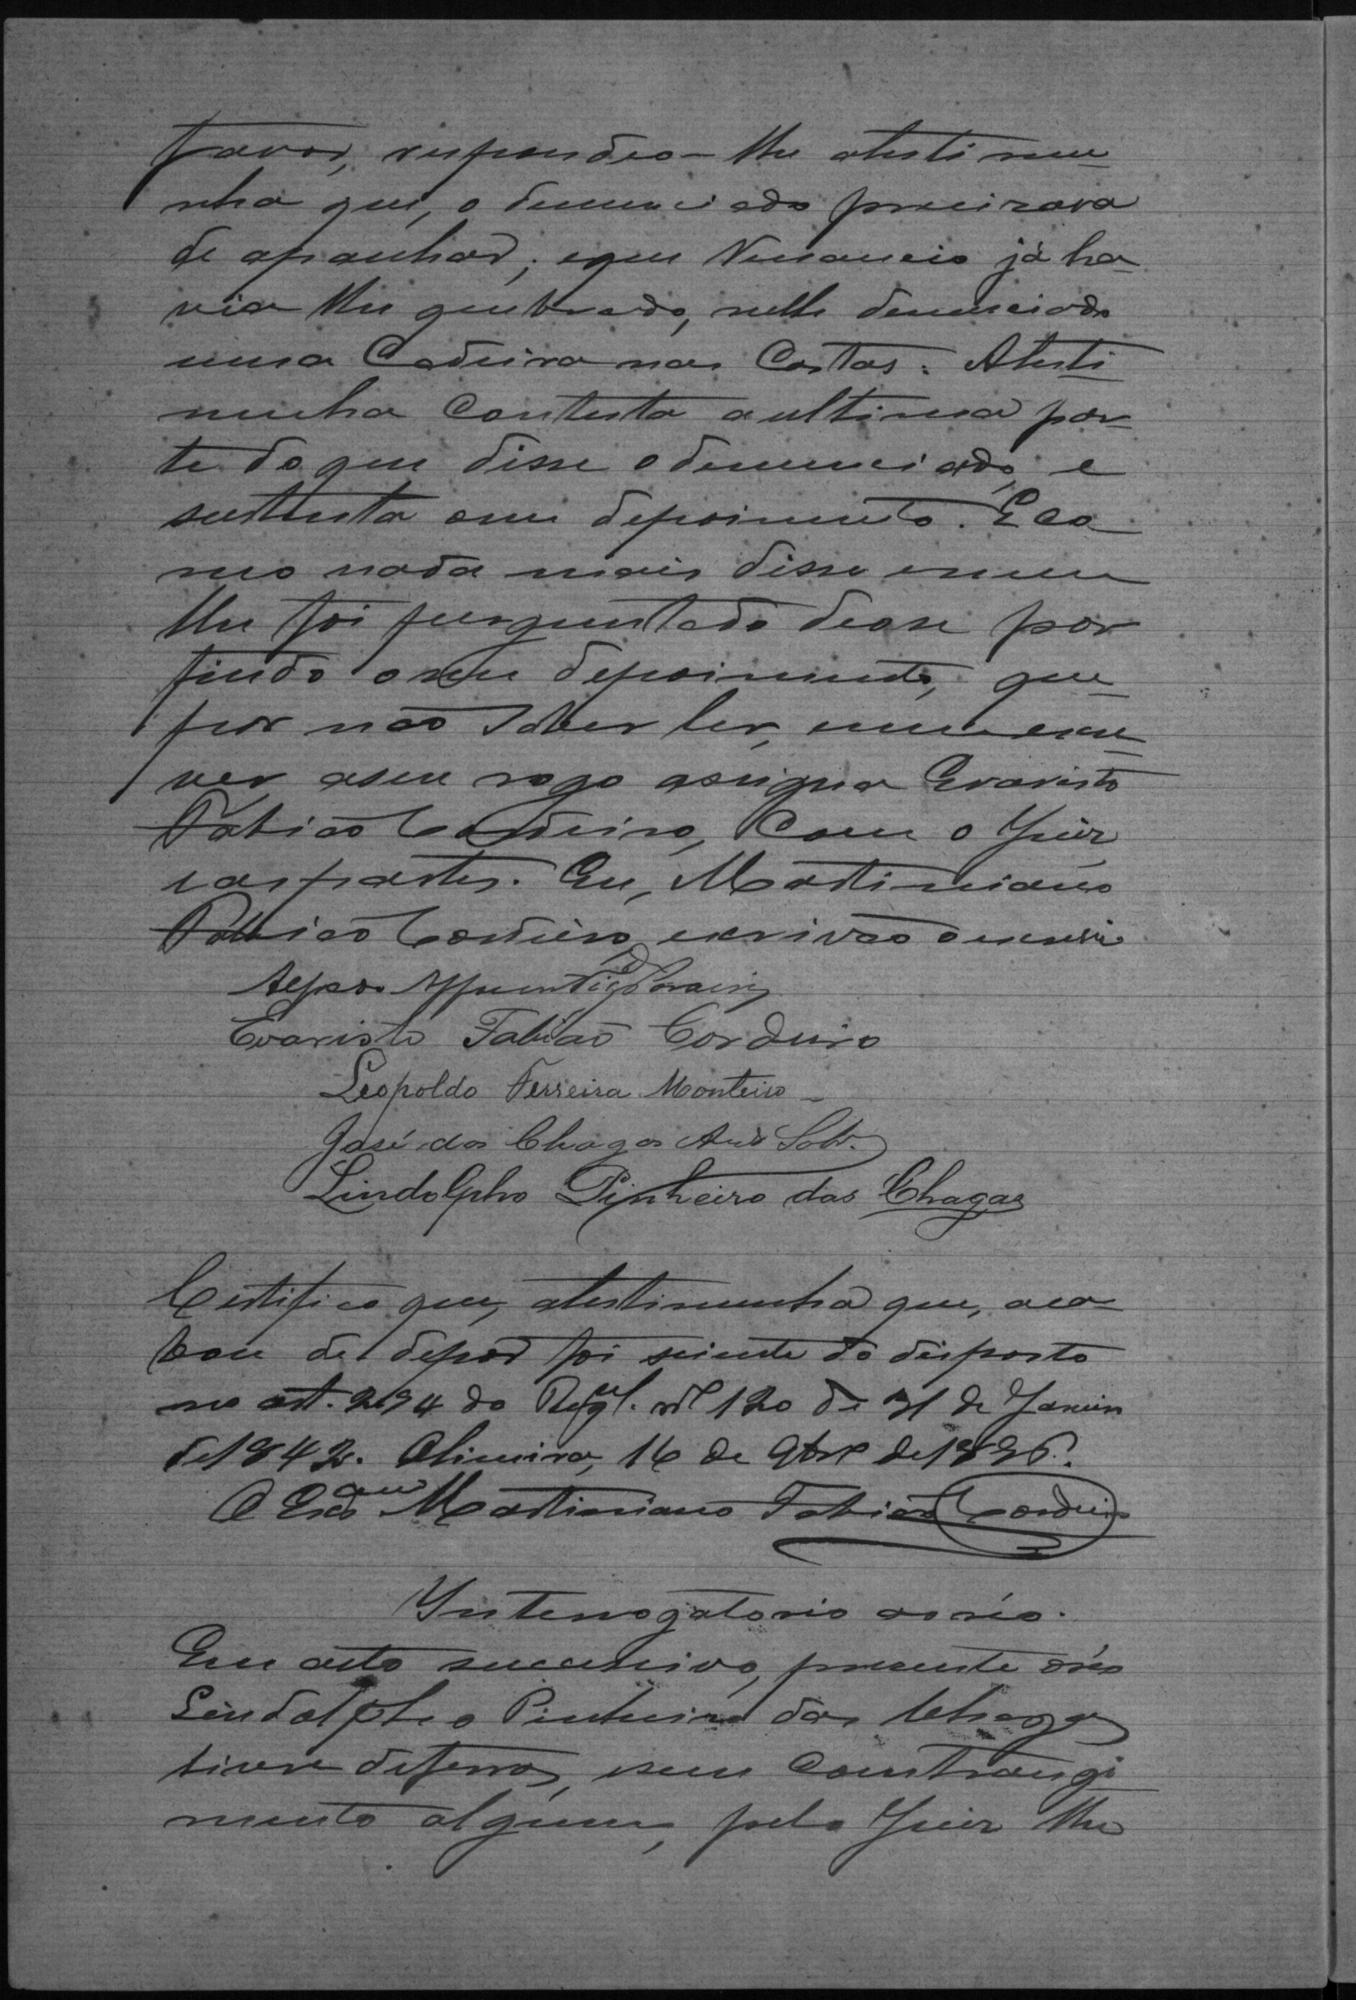 favor, respondeo-lhe atestimu-
nha que, o denunciado precizava
de apanhar; eque Venancio já ha-
via lhe quebrado, nelle denunciado
uma Cadeira nas Costas. Atesti-
munha Contesta aultima par-
te do que disse odenunciado, e
sustenta oseu depoimento. E co-
mo nada mais disse enem
lhe foi perguntado deose por
findo oseu depoimento, que
por não saber ler, nem escre-
ver, aseu rogo assigna Evaristo
Fabião Cordeiro, Com o Juiz
eas partes. Eu, Martimiano
Fabião Cordeiro, escrivão oescrevi
Evaristo Fabião Cordeiro
Leopoldo Ferreira Monteiro
José das Chagas And.e Sobr.
Lindolpho Pinheiro das Chagas
Certifico que, atestimunha que, aca-
bou de depor foi sciente do disposto
no art. 294 do Regul. nº 120 de 31 de Janeiro
de 1842. Oliveira, 16 de 9bro de 1896.
O Escam Martimiano Fabião Cordeiro
Interrogatorio ao réo.
Em acto successivo, presente oréo
Lindolpho Pinheiro das Chagas
livre deferros, esem Constrangi-
mento algum, pelo Juiz lhe